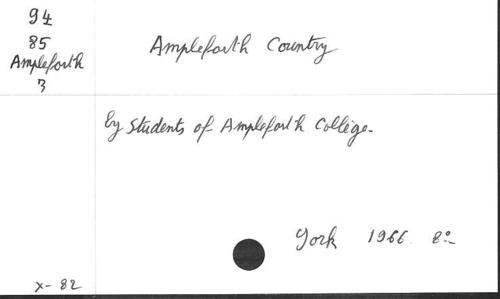 94
85
Ampleforth
3
Ampleforth Country
by students of Ampleforth College.
York 1966. 8º
X-82